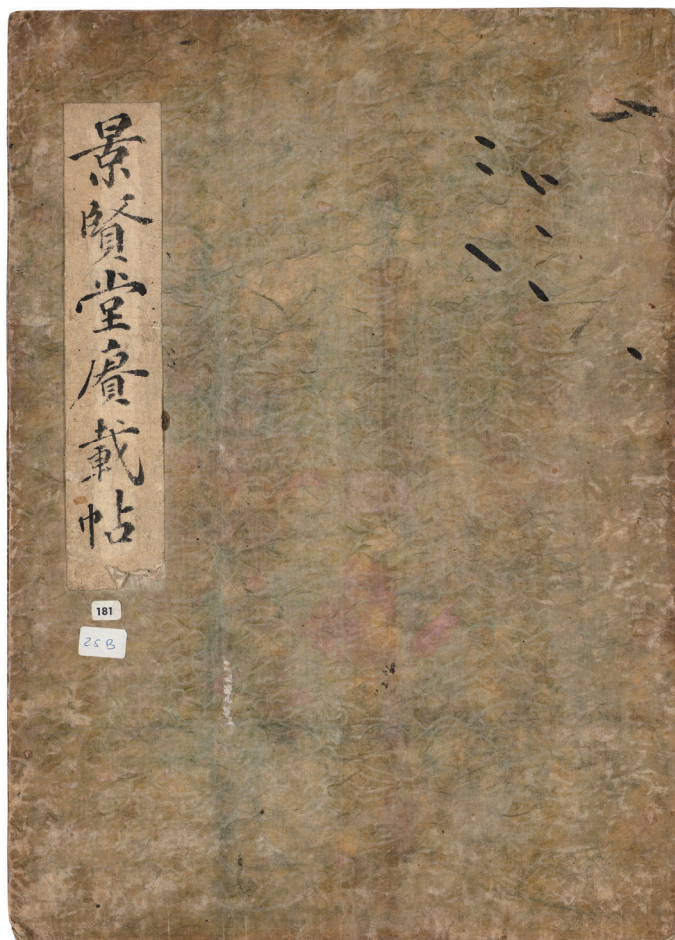 景賢堂賡載帖
181
25B